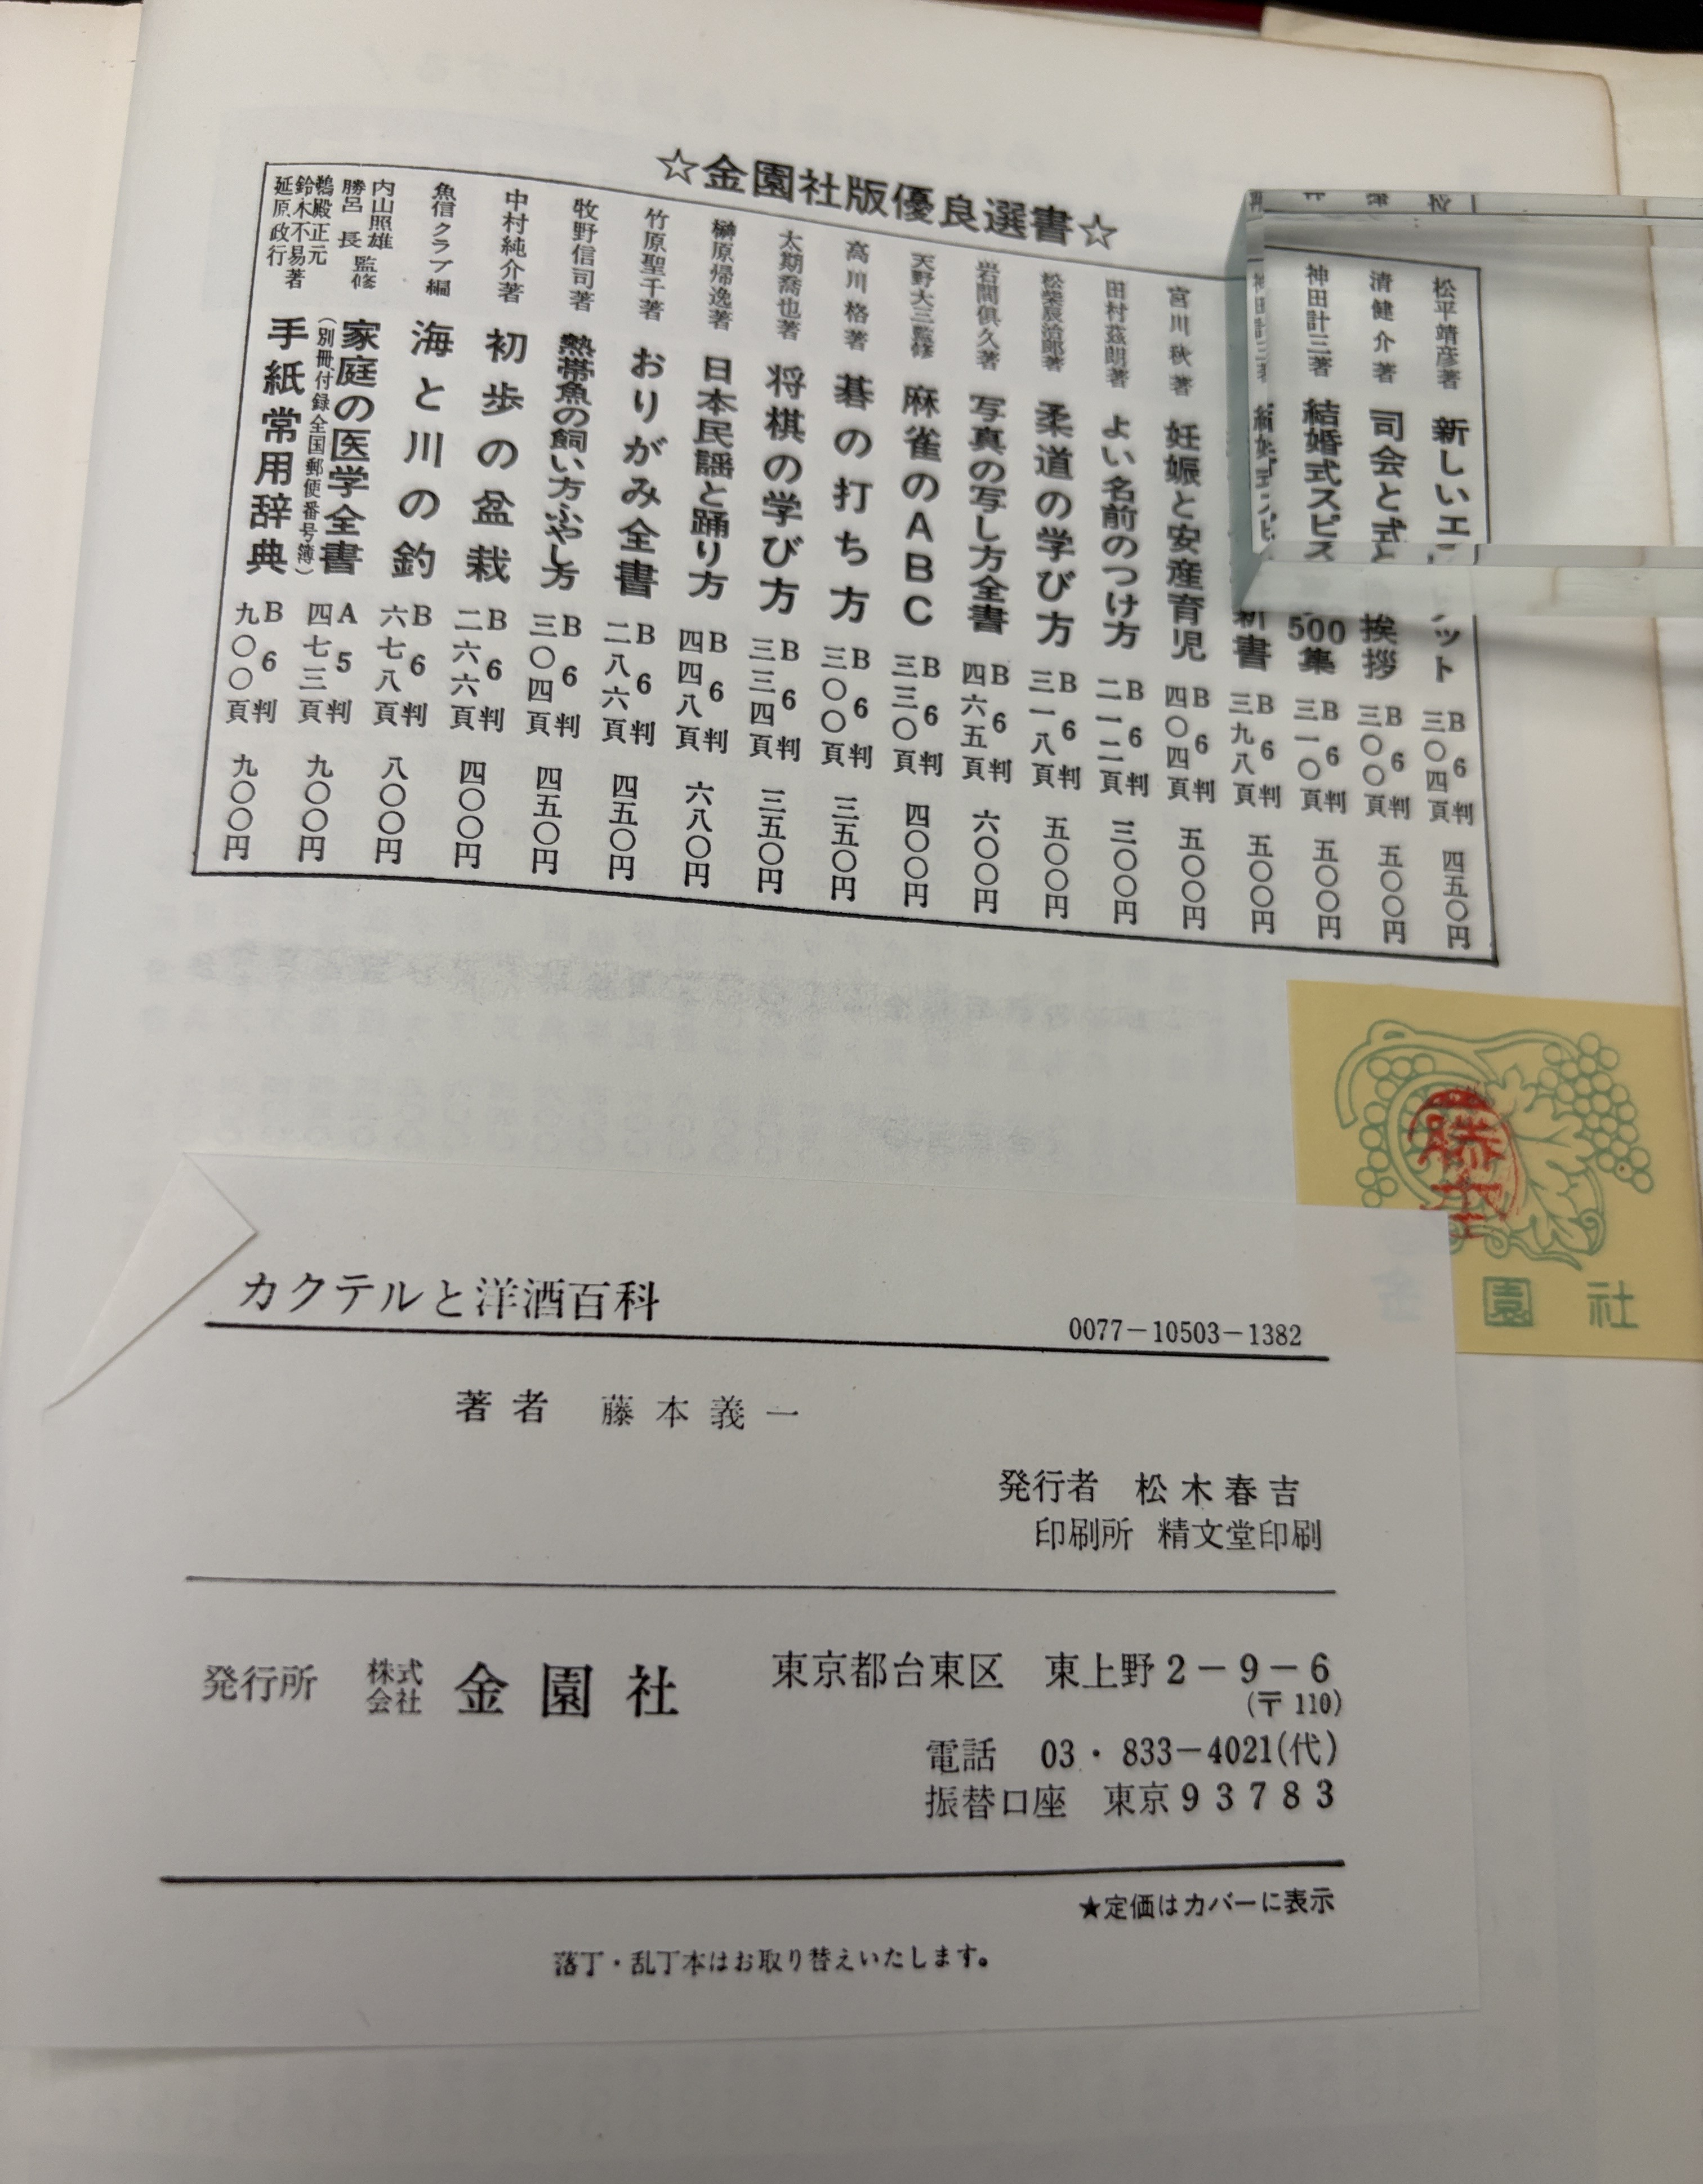 ☆金園社版優良選書☆
松平靖彦著 新しいエ ット B6判 三〇四頁 四五〇円
清健介著 司会と式と 挨拶 B6判 三〇〇頁 五〇〇円
神田計三著 結婚式スピ 500集 B6判 三一〇頁 五〇〇円
神田計三著 結婚式スピ 新書 B6判 三九八頁 五〇〇円
宮川秋著 妊娠と安産育児 B6判 四〇四頁 五〇〇円
田村茲朗著 よい名前のつけ方 B6判 二一二頁 三〇〇円
辰治郎著 柔道の学び方 B6判 三一八頁 五〇〇円
岩間倶久著 写真の写し方全書 B6判 四六五頁 六〇〇円
天野大三監修 麻雀のABC B6判 三三〇頁 四〇〇円
高川格著 碁の打ち方 B6判 三〇〇頁 三五〇円
太期喬也著 将棋の学び方 B6判 三三四頁 三五〇円
榊原帰逸著 日本民謡と踊り方 B6判 四四八頁 六八〇円
竹原聖千著 おりがみ全書 B6判 二八六頁 四五〇円
牧野信司著 熱帯魚の飼い方ふやし方 B6判 三〇四頁 四五〇円
中村純介著 初歩の盆栽 B6判 二六六頁 四〇〇円
魚信クラブ編 海と川の釣 B6判 六七八頁 八〇〇円
内山照雄 勝呂長 監修 家庭の医学全書 A5判 四七三頁 九〇〇円
鵜殿正元 鈴木不易 延原政行 著 (別冊付録全国郵便番号簿) 手紙常用辞典 B6判 九〇〇頁 九〇〇円
藤本
金園社
カクテルと洋酒百科
0077-10503-1382
著者 藤本義一
発行者 松木春吉
印刷所 精文堂印刷
発行所 株式会社 金園社
東京都台東区 東上野2-9-6
(〒110)
電話 03・833-4021(代)
振替口座 東京93783
★定価はカバーに表示
落丁・乱丁本はお取り替えいたします。